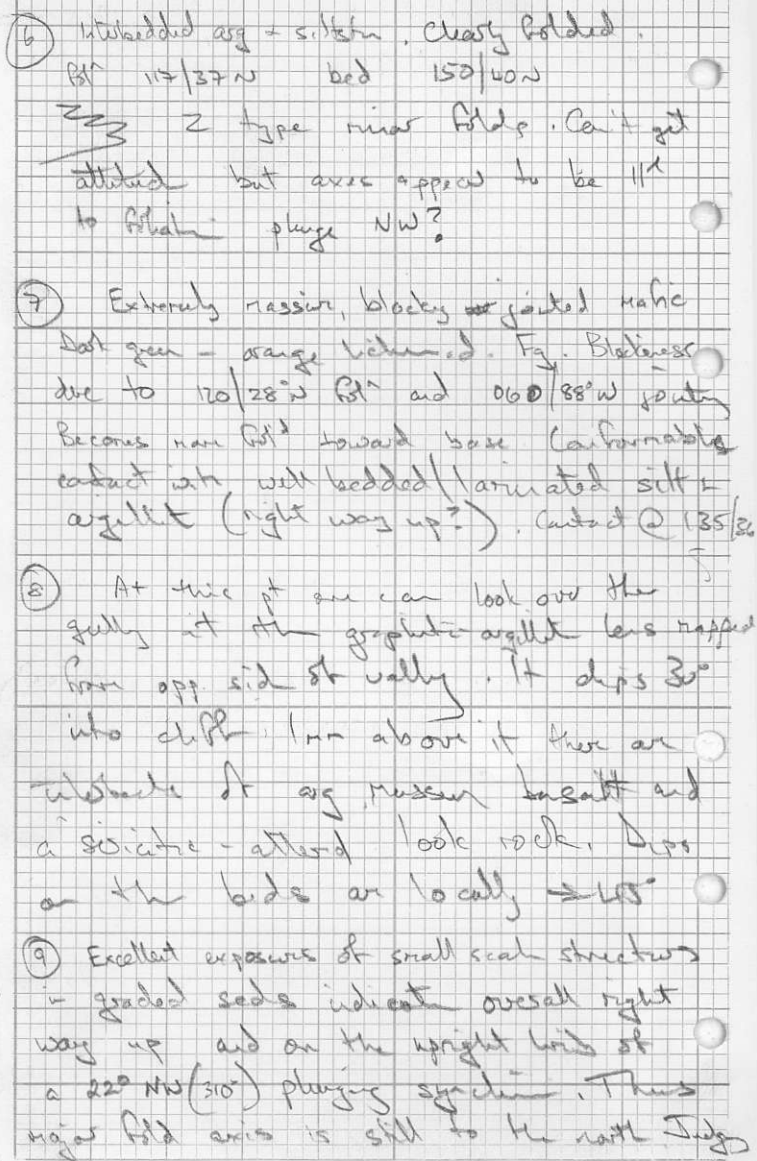 6 Interbedded arg + siltstn. Clearly folded.
folⁿ 117/37N bed 150/40N
Z type minor folds. Can't get
attitud but axes appear to be 11ˡ
to foliatn plunge NW?
7 Extremely massive, blocky jointed mafic
Dark green - orange lichen.d. Fg. Blockiness
due to 120/28°N folⁿ and 060/88°W jointing
Becomes more folᵈ toward base Conformable
contact with well bedded/laminated silt +
argillit (right way up?). Contact @ 135/36
8 At this pt one can look over the
gully at the graphitic argillit lens mapped
from opp. side of valley. It dips 30°
into cliff. 1m above it there are
interbeds of arg massive basalt and
a sericitic - altered look rock. Dips
on the beds are locally → 45°
9 Excellent exposures of small scale structures
in graded seds indicate overall right
way up and on the upright limb of
a 22° NW (310°) plunging syncline. Thus
major fold axis is still to the north Judg